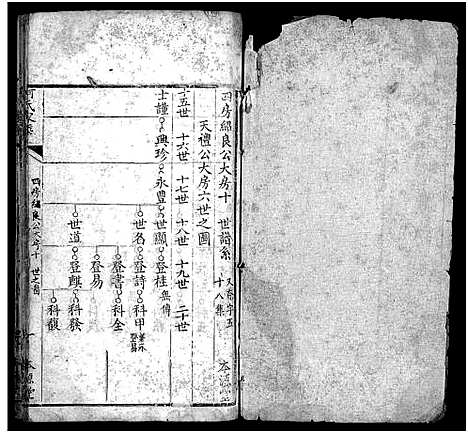 四房紹良公大房十 世譜系
又奇字五
十八集
本源堂
天禮公大房六世之圖
十五世 十六世 十七世 十八世 十九世 二十世
士謹 興珍 永豐 世顯 登桂 無傳
世名 登詩 科甲 兼承登易
登書 科全
登易
世道 登麒 科發
科馥
氏
四房紹良公大房十 世之圖
十 本源堂